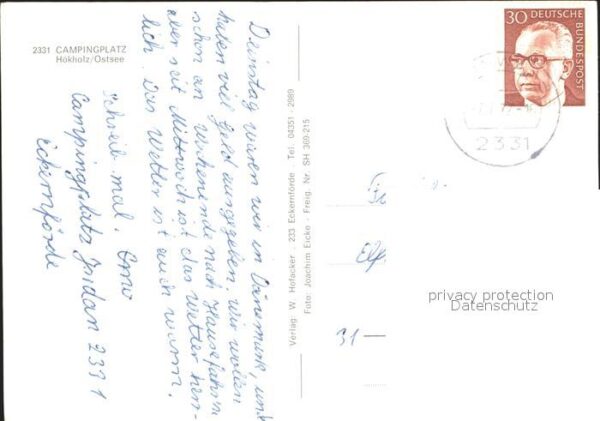 2331 CAMPINGPLATZ
Hökholz/Ostsee
Dienstag waren wir in Dänemark, und
haben viel Geld ausgegeben. Wir wollen
schon am Wochenende nach Hause fahren
aber seit Mittwoch ist das Wetter herr-
lich. Das Wetter ist auch warm.
Schreib mal! Omi
Campingplatz Jordan 2331
Eckernförde
Verlag: W. Hofacker 233 Eckernförde Tel. 04351-2989
Foto: Joachim Eicke - Freig. Nr. SH 369-215
30 DEUTSCHE
BUNDESPOST
2331
31
privacy protection
Datenschutz